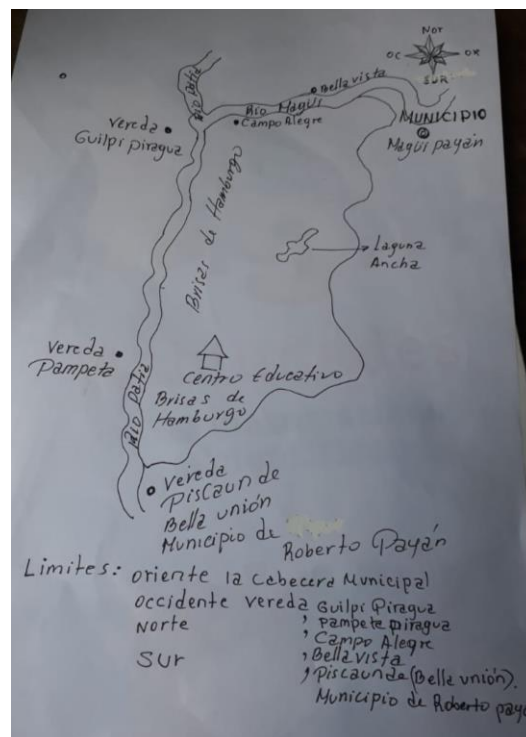 Nor
OC
OR
SUR
Río Patía
Río Magüí
Bella vista
Campo Alegre
MUNICIPIO
Magüi payán
Vereda
Guilpí piragua
Brisas de Hamburgo
Laguna
Ancha
Vereda
Pampeta
Centro Educativo
Brisas de
Hamburgo
Río Patía
Vereda
Piscaun de
Bella unión
Municipio de
Roberto Payán
Limites: oriente la Cabecera Municipal
occidente vereda Guilpí Piragua
, pampeta piragua
Norte , Campo Alegre
, Bella vista
Sur , Piscaunde (Bella unión).
Municipio de Roberto paya